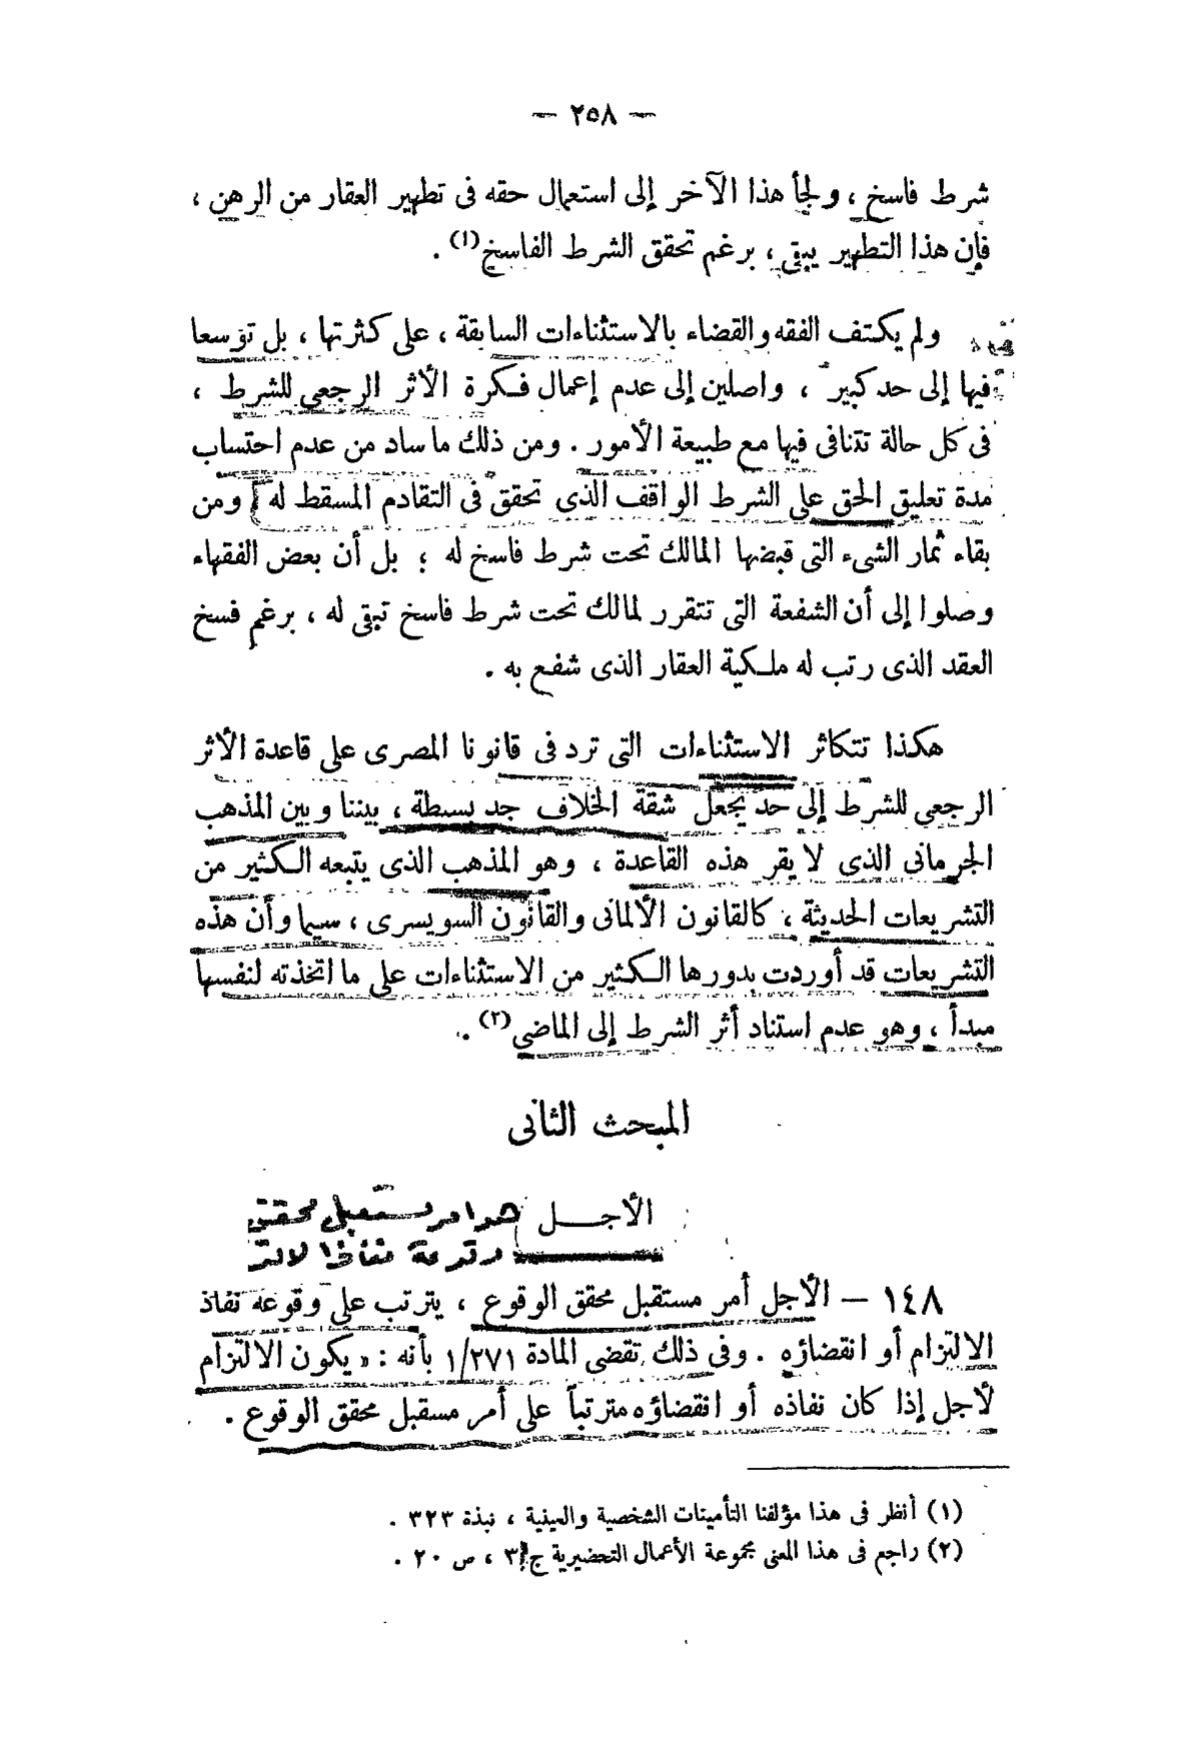 — ٢٥٨ —
شرط فاسخ ، ولجأ هذا الآخر إلى استعمال حقه فى تطهير العقار من الرهن ،
فإن هذا التطهير يبقى ، برغم تحقق الشرط الفاسخ(١) .
ولم يكتف الفقه والقضاء بالاستثناءات السابقة ، على كثرتها ، بل توسعا
فيها إلى حد كبير ، واصلين إلى عدم إعمال فكرة الأثر الرجعى للشرط ،
فى كل حالة تتنافى فيها مع طبيعة الأمور . ومن ذلك ما ساد من عدم احتساب
مدة تعليق الحق على الشرط الواقف الذى تحقق فى التقادم المسقط له ، ومن
بقاء ثمار الشىء التى قبضها المالك تحت شرط فاسخ له ؛ بل أن بعض الفقهاء
وصلوا إلى أن الشفعة التى تتقرر لمالك تحت شرط فاسخ تبقى له ، برغم فسخ
العقد الذى رتب له ملكية العقار الذى شفع به .
هكذا تتكاثر الاستثناءات التى ترد فى قانونا المصرى على قاعدة الأثر
الرجعى للشرط إلى حد يجعل شقة الخلاف جد بسيطة ، بيننا وبين المذهب
الجرمانى الذى لا يقر هذه القاعدة ، وهو المذهب الذى يتبعه الكثير من
التشريعات الحديثة ، كالقانون الألمانى والقانون السويسرى ، سيما وأن هذه
التشريعات قد أوردت بدورها الكثير من الاستثناءات على ما اتخذته لنفسها
مبدأ ، وهو عدم استناد أثر الشرط إلى الماضى(٢) .
المبحث الثانى
الأجل هو امر مستقبل محقق
١٤٨ — الأجل أمر مستقبل محقق الوقوع ، يترتب على وقوعه نفاذ
الالتزام أو انقضاؤه . وفى ذلك تقضى المادة ١/٢٧١ بأنه : « يكون الالتزام
لأجل إذا كان نفاذه أو انقضاؤه مترتباً على أمر مسقبل محقق الوقوع .
(١) أنظر فى هذا مؤلفنا التأمينات الشخصية والعينية ، نبذة ٣٢٣ .
(٢) راجع فى هذا المعنى مجموعة الأعمال التحضيرية ج ٣ ، ص ٢٠ .